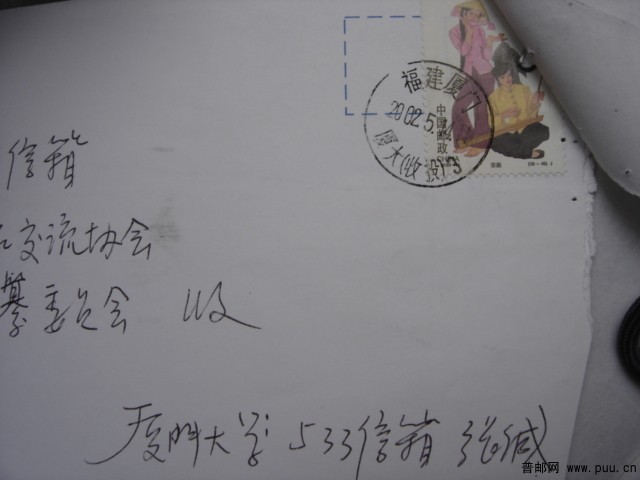 福建厦门
2002.5.
厦大(收投)3
中国邮政
信箱
交流协会
纂委员会 收
厦门大学 533信箱 张
普邮网 www.puu.cn